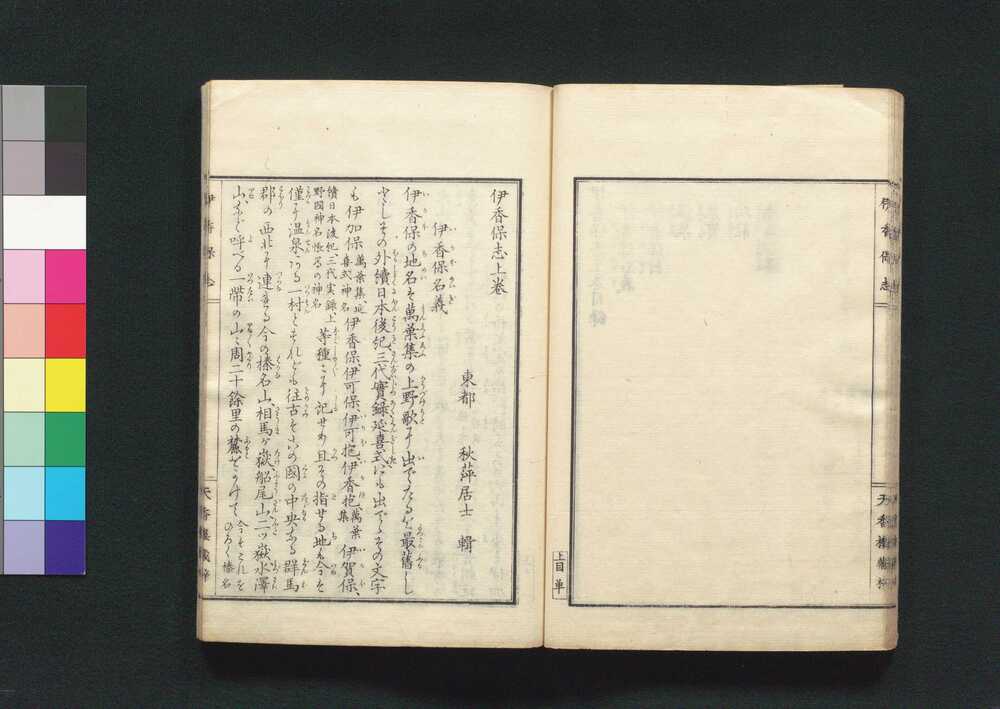 上目 単
伊香保志上巻
東都 秋萍居士 輯
伊香保名義
伊香保の地名は萬葉集の上野歌に出でたるを最舊しと
さしその外續日本後紀三代實録延喜式にも出でゝその文字
も 伊加保 萬葉集、延喜式神名 伊香保、伊可保、伊可抱、伊香抱 萬葉集 伊賀保、
續日本後紀三代実録上野國神名帳等の神名 等種々に記せり且その指せる地も今は
僅に温泉ある一村とすれども往古はこの國の中央なる群馬
郡の西北に連れる今の榛名山、相馬ヶ嶽船尾山二ッ嶽水澤
山など呼べる一帯の山々周二十餘里の麓をかけて 今もこれをひろく榛名
伊香保志